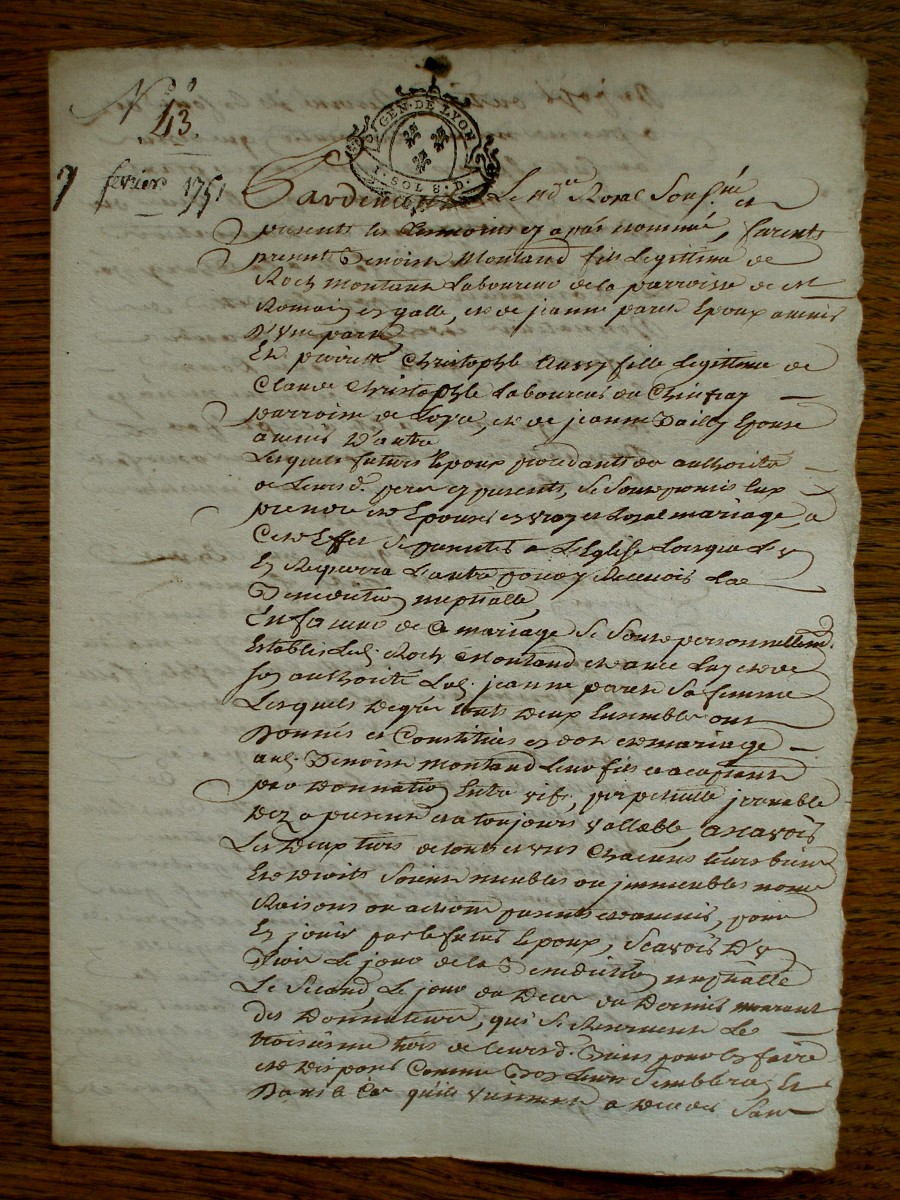 No
43.
GEN. DE LYON
1. SOL 8. D.
7 fevrier 1751
Pardevant Le no.re Royal Sousg.né et
presents les temoins cy apres nommés, furents
present Benoist Montand fils legittime de
Roch montand Laboureur de la parroisse de st
Romain en galle, et de jeanne paret Epoux a venir
D'Une part
Et pierrette Christophle aussy fille legittime de
Claude Christophle Laboureur du
parroisse de Loyre, et de jeanne Bailly Epouse
a venir D'autre
Lesquels futurs Epoux procedants de authorité
de Leursd. pere et parents, se sont promis Eux
prendre et Epouser en vray et Loyal mariage, a
Cet Effet se presenter a L'Eglise Lorsque L'un
En Requerra L'autre pour y Recevoir La
Benediction nuptialle,
En faveur de Ce mariage se sont personnellemt.
Establis Led. Roch Montand et avec Luy et de
son authorité Lad. jeanne paret sa femme
Lesquels de gré touts deux Ensemble ont
Donnés et Constitués en dot et mariage
aud. Benoist montand leur fils et acceptant
par Donnation Entre vifs, perpetuelle jrrevocable
Dez a present et a toujours vallable, a scavoir
Les deux tiers de touts et uns Chacuns leurs biens
Et droits soient meubles ou jmmeubles noms
Raisons ou actions presents et a venir, pour
En jouir par le futur Epoux, scavoir D'un
Tiers Le jour de la Benediction nuptialle
Le Second, Le jour du Deces du Dernier mourant
des Donnateurs, qui se Reservent Le
troisieme tiers de leursd. Biens pour En faire
et disposer Comme bon Leur semblera, Et
Dans le Cas qu'ils viennent a deceder sans